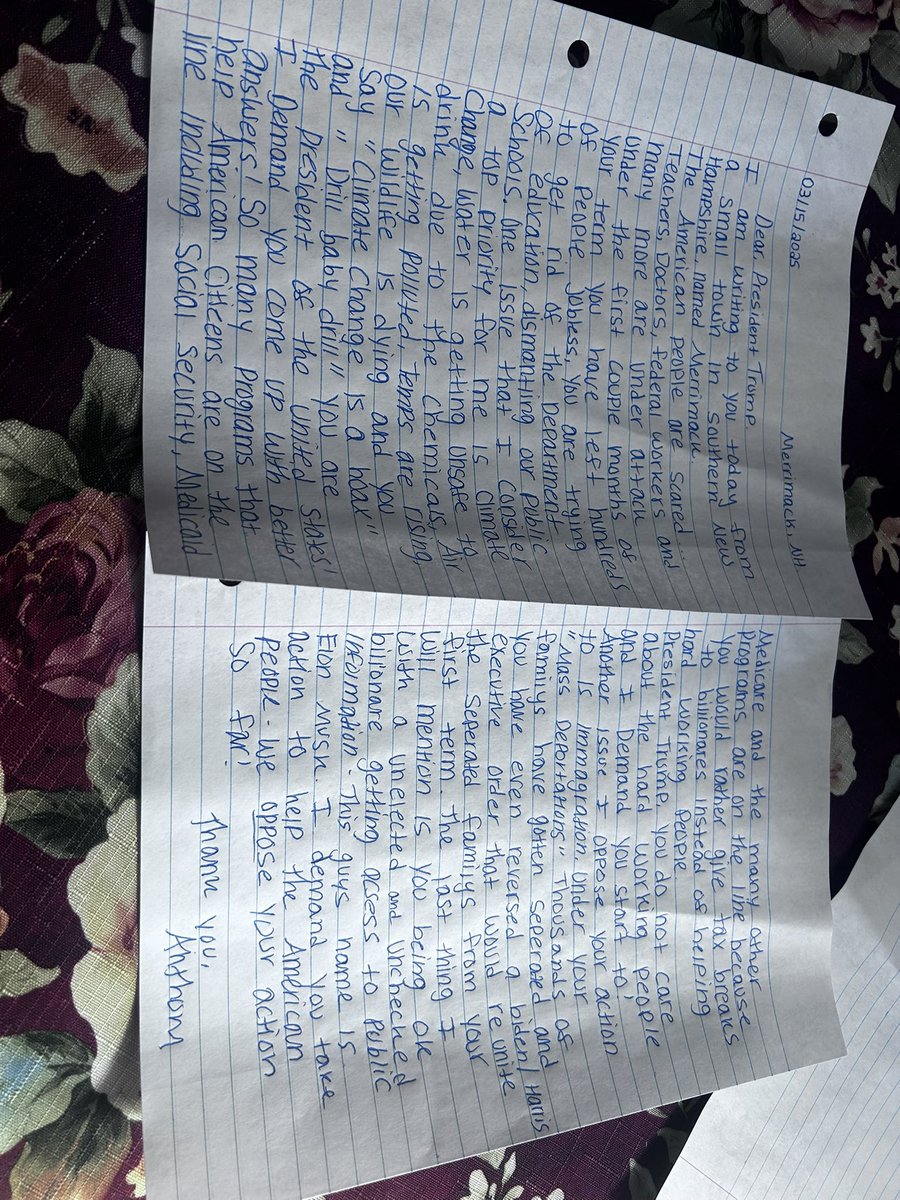 03/15/2025 Merrimack, NH
Dear President Trump
I am writing to you today from
a small town in southern New
Hampshire named Merrimack.
The American people are scared
Teachers, Doctors, federal workers and
many more are under attack
under the first couple months of
your term you have left hundreds
of people jobless, you are trying
to get rid of the Department
of education, dismantling our public
Schools. One issue that I consider
a top priority for me is climate
Change, Water is getting unsafe to
drink due to the chemicals, Air
is getting polluted, temps are rising,
our wildlife is dying and you
Say "Climate Change is a hoax"
and "Drill baby drill" you are
the president of the united states!
I Demand you come up with better
answers! So many programs that
help American Citizens are on the
line including Social Security, Medicaid
Medicare and the many other
Programs are on the line because
You would rather give tax breakes
to billionaires instead of helping
hard working people.
President Trump, you do not care
about the hard working people
and I Demand you start to,
Another issue I oppese your action
to is immagration. under your
"Mass Deportations" Thousands of
familys have gotten seperated and
you have even reversed a biden/Harris
executive order that would reunite
the seperated familys from your
first term. The last thing I
will mention is you being ok
with a unelected and unchecked
billionare getting acsess to public
information. This guys name is
Elon Musk. I demand you take
action to help the American
people. We oppose your action
so far.
Thank you,
Anthony